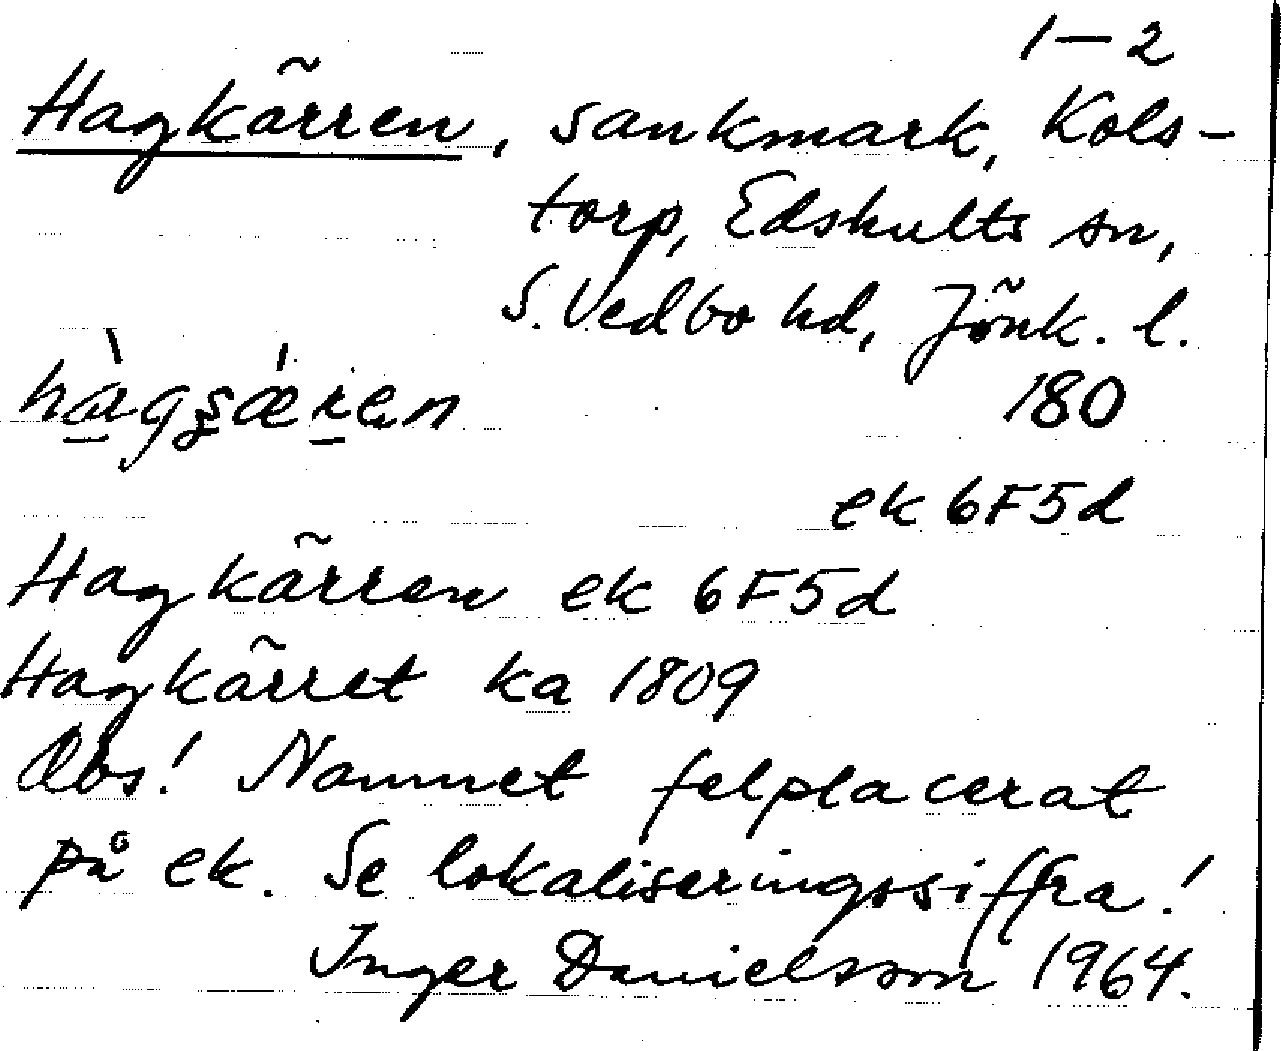 1–2
Hagkärren, sankmark, Kols-
torp, Edshults sn,
S. Vedbo hd, Jönk. l.
180
ek 6F5d
Hagkärren ek 6F5d
Hagkärret ka 1809
Obs! Namnet felplacerat
på ek. Se lokaliseringssiffra!
Inger Danielsson 1964.